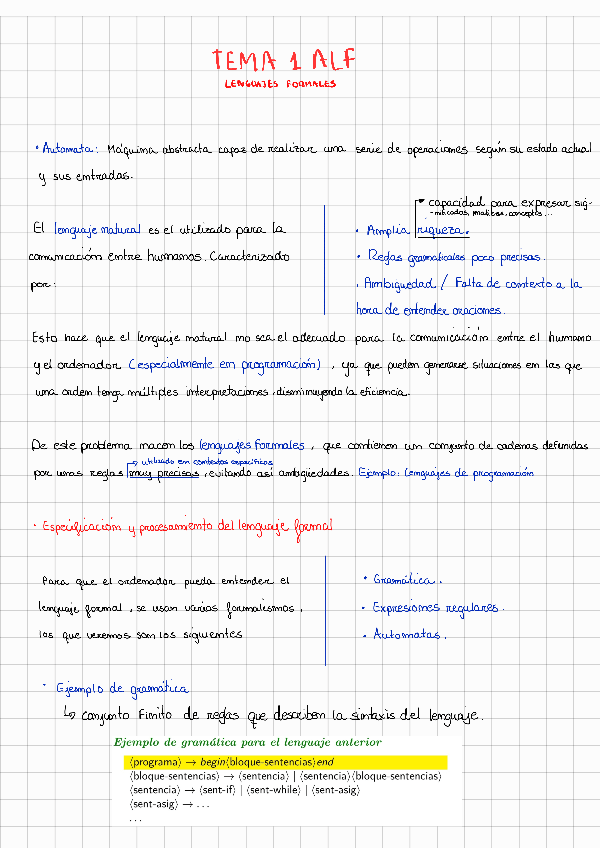 TEMA 1 ALF
LENGUAJES FORMALES
• Automata: Máquina abstracta capaz de realizar una serie de operaciones según su estado actual
y sus entradas.
El lenguaje natural es el utilizado para la
comunicación entre humanos. Caracterizado
por:
capacidad para expresar sig-
-nificados, matices, conceptos...
• Amplia riqueza.
• Reglas gramaticales poco precisas.
• Ambigüedad / Falta de contexto a la
hora de entender oraciones.
Esto hace que el lenguaje natural no sea el adecuado para la comunicación entre el humano
y el ordenador (especialmente en programación), ya que pueden generarse situaciones en las que
una orden tenga múltiples interpretaciones, disminuyendo la eficiencia.
De este problema nacen los lenguajes formales, que contienen un conjunto de cadenas definidas
utilizado en contextos específicos
por unas reglas muy precisas, evitando así ambigüedades. Ejemplo: Lenguajes de programación
• Especificación y procesamiento del lenguaje formal
Para que el ordenador pueda entender el
lenguaje formal, se usan varios formalismos,
los que veremos son los siguientes
• Gramática.
• Expresiones regulares.
• Automatas.
• Ejemplo de gramática
↳ conjunto finito de reglas que describen la sintaxis del lenguaje.
Ejemplo de gramática para el lenguaje anterior
⟨programa⟩ → begin⟨bloque-sentencias⟩end
⟨bloque-sentencias⟩ → ⟨sentencia⟩ | ⟨sentencia⟩⟨bloque-sentencias⟩
⟨sentencia⟩ → ⟨sent-if⟩ | ⟨sent-while⟩ | ⟨sent-asig⟩
⟨sent-asig⟩ → ...
...